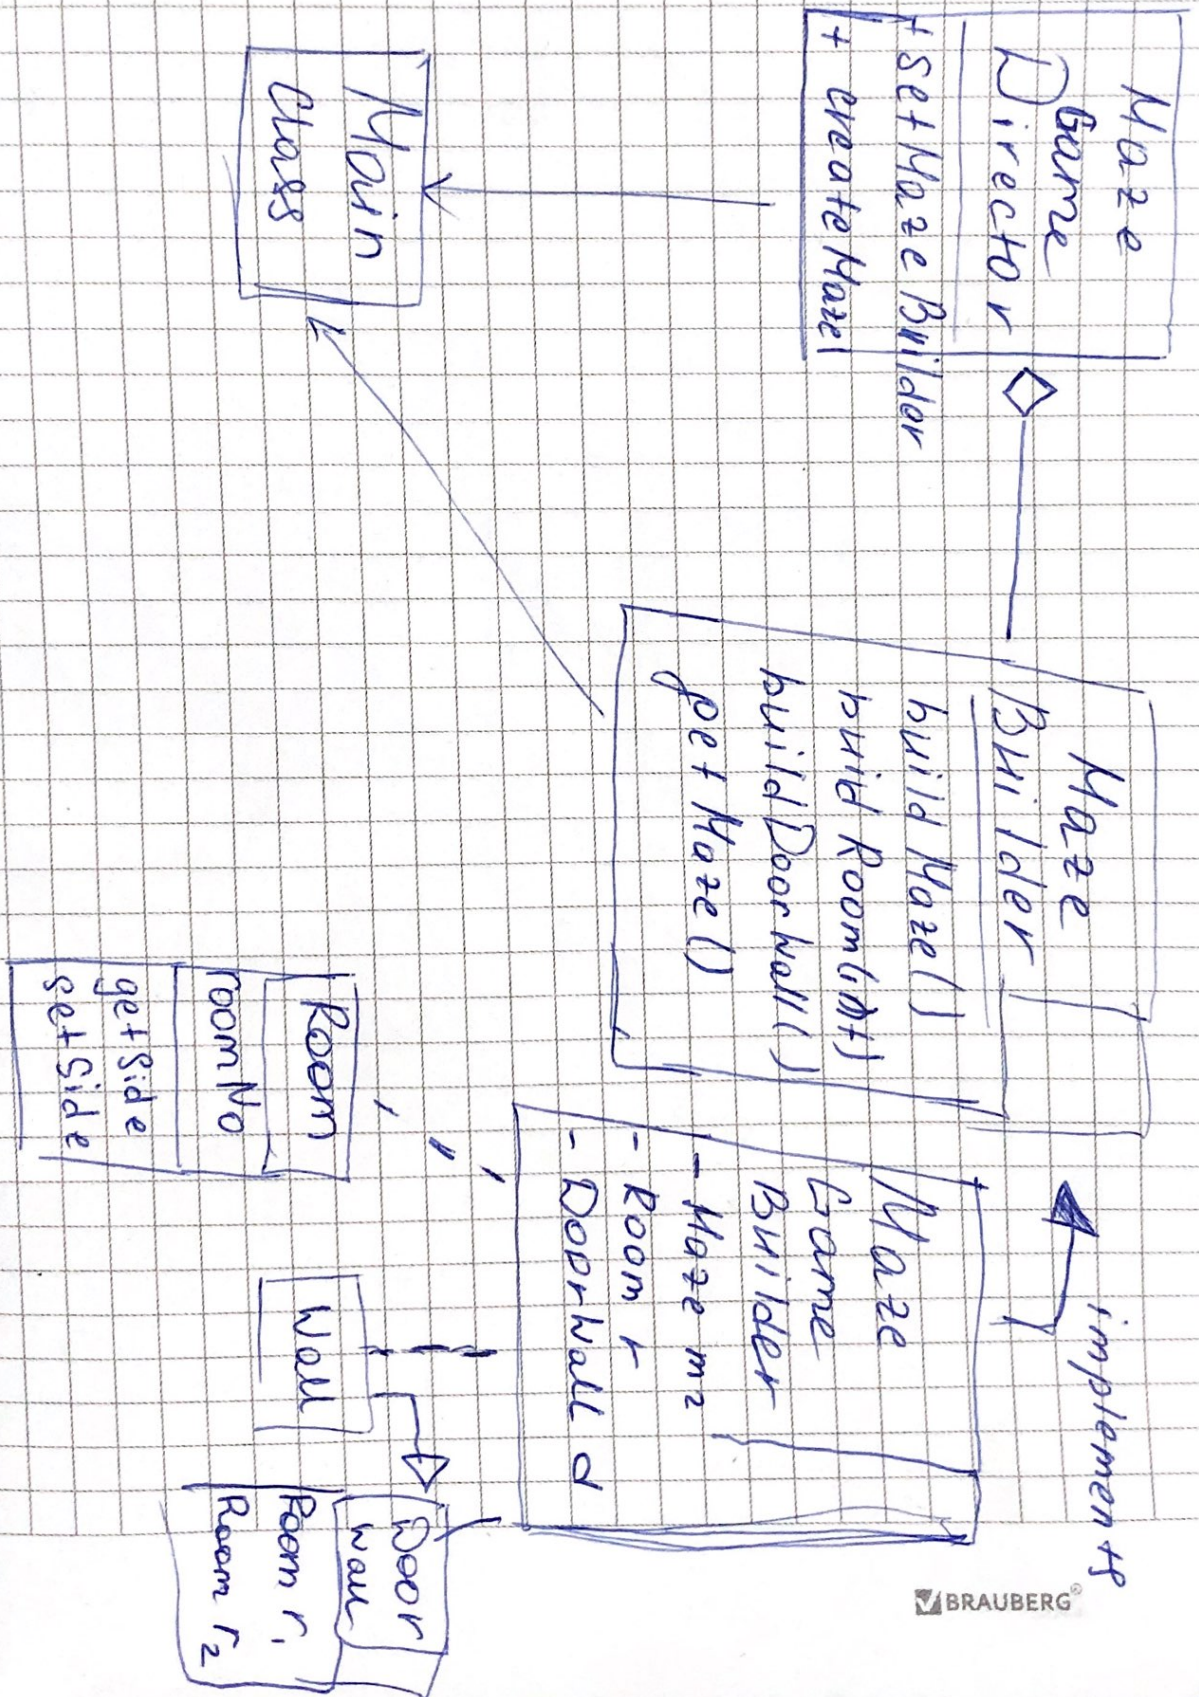 Maze
Game
Director
+ setMazeBuilder
+ createMaze()
Main
Class
Maze
Builder
buildMaze()
build Room(int)
buildDoorWall()
getMaze()
implements
Maze
Game
Builder
- Maze m2
- Room r
- DoorWall d
Room
roomNo
getSide
setSide
Wall
Door
Wall
Room r1
Room r2
BRAUBERG®